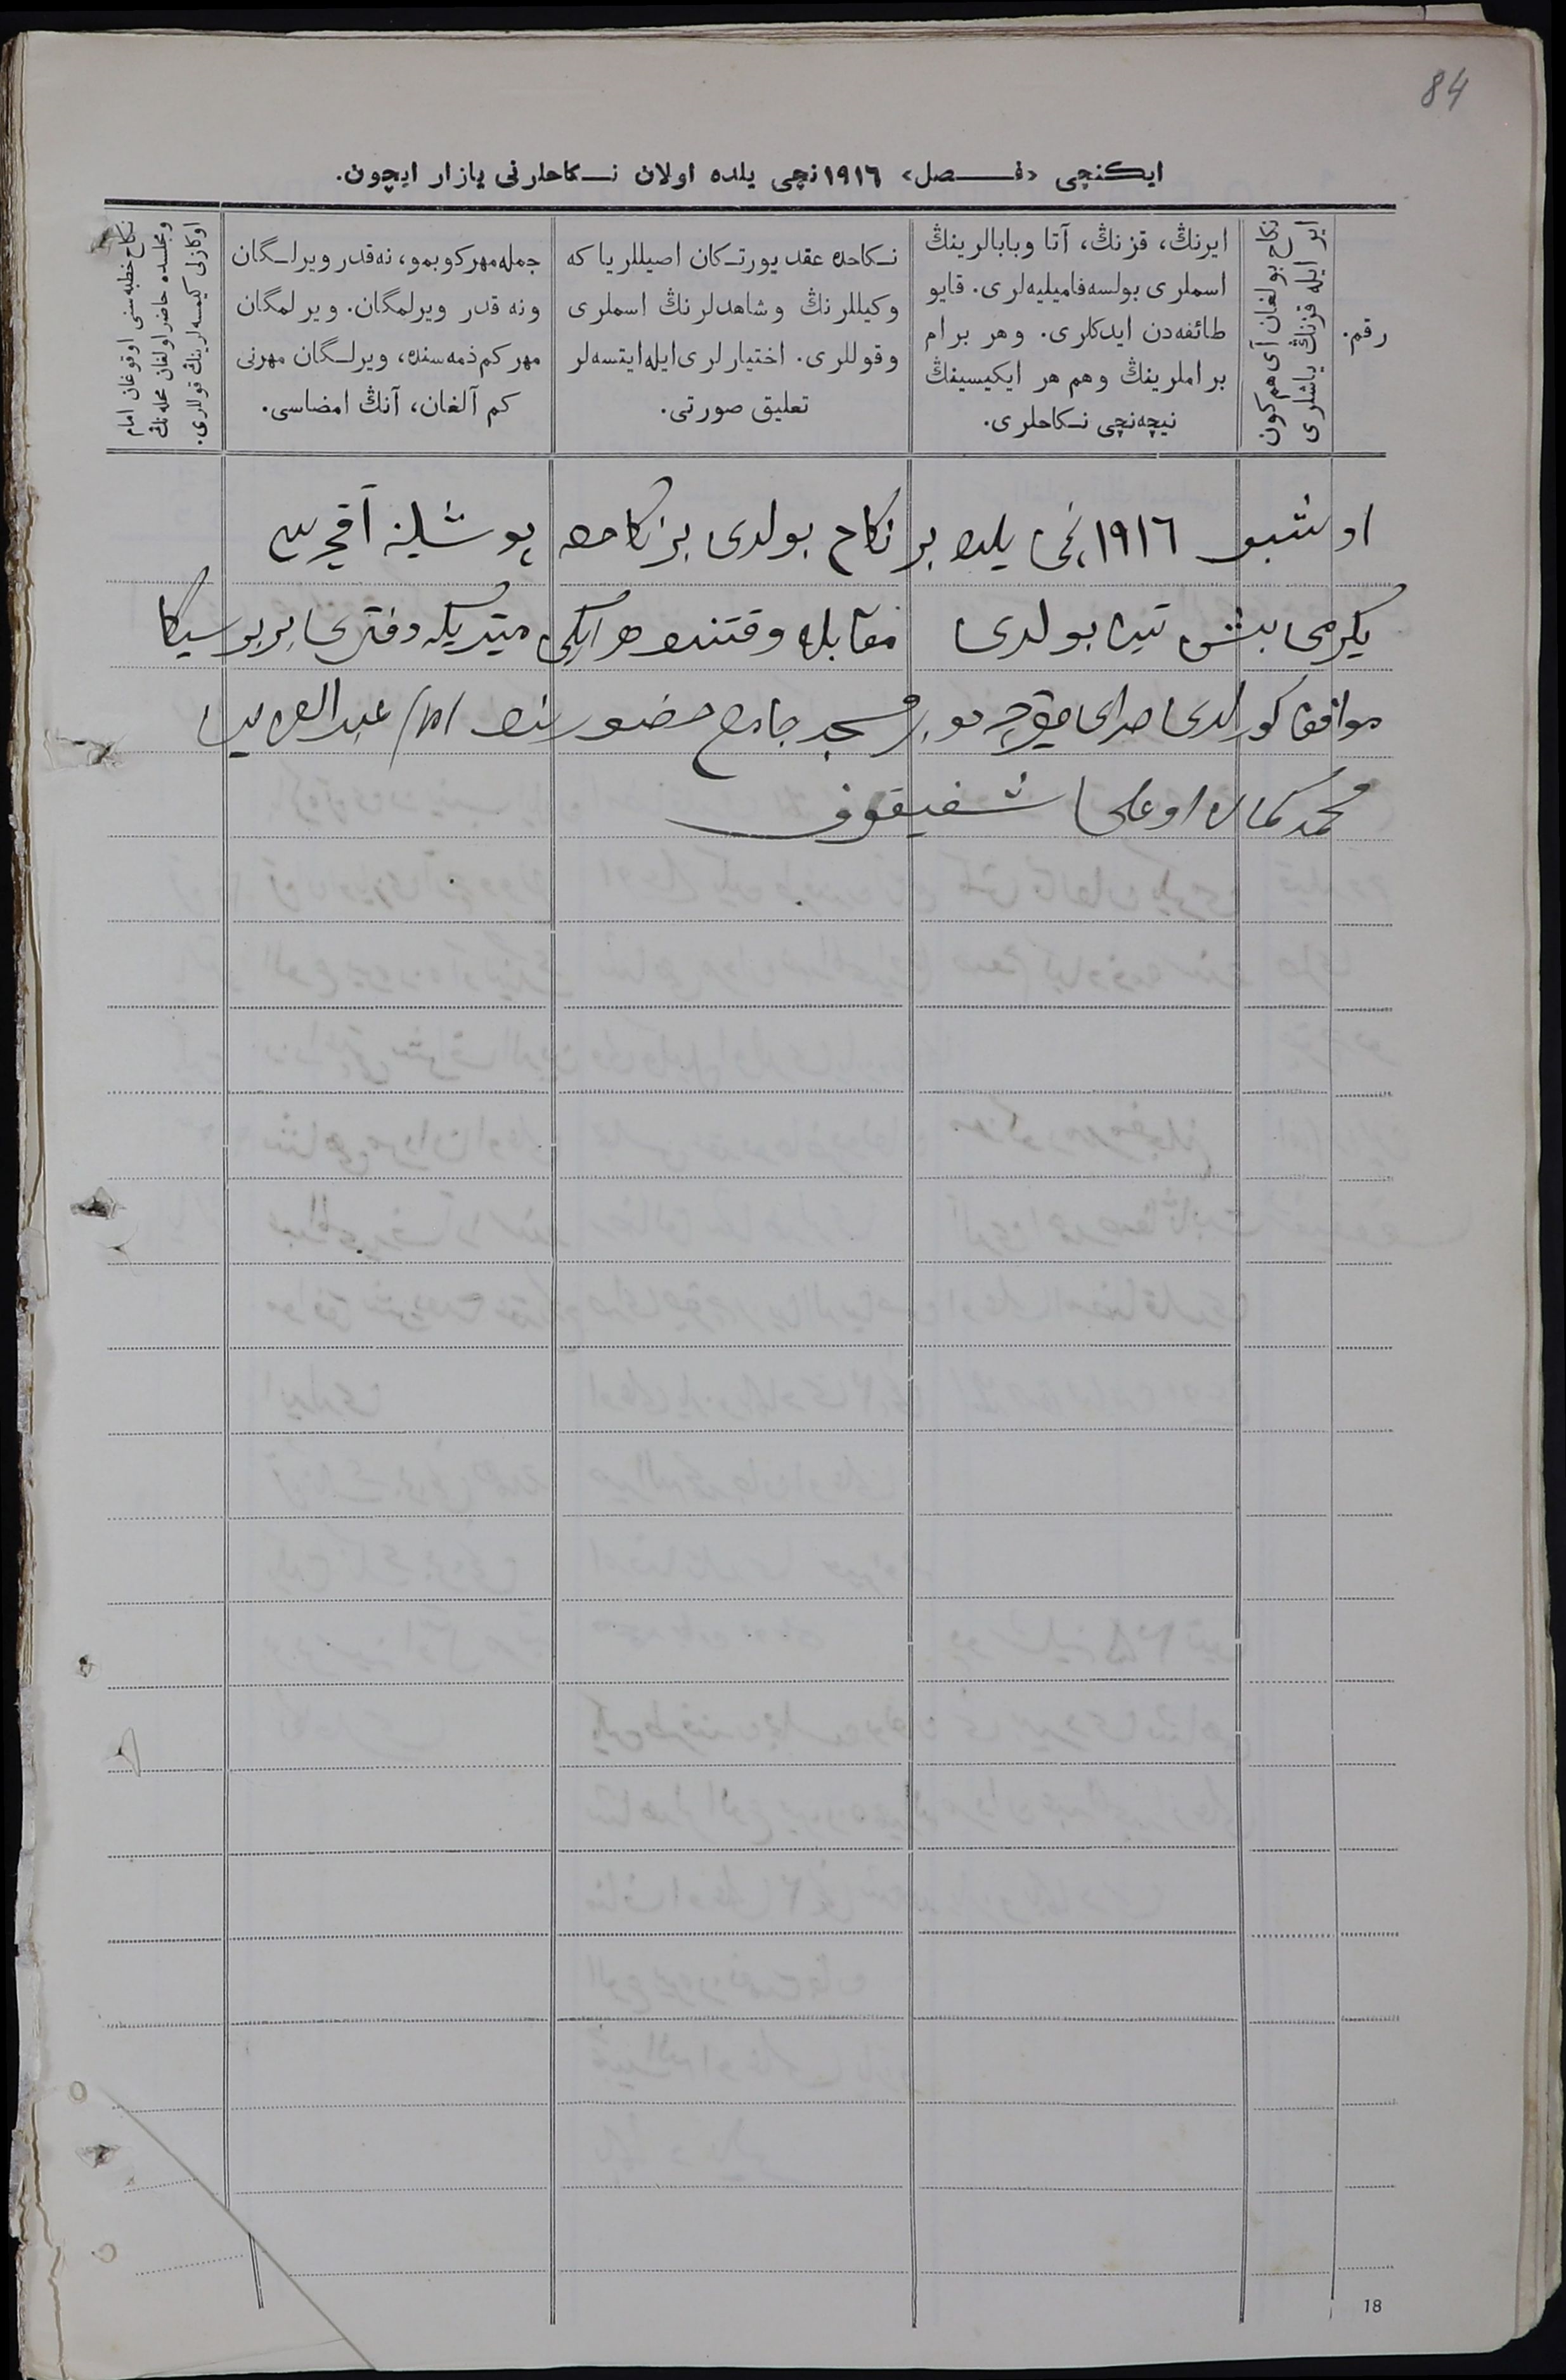 84
ایکنچی «فصل» ۱۹۱٦نچی یلده اولان نکاحلرنی یازار ایچون.
رقم.
نکاح بولغان آی هم کون
ایر ایله قزنڭ یاشلری
ایرنڭ، قزنڭ، آتا وبابالرینڭ
اسملری بولسه فامیلیه‌لری. قایو
طائفه‌دن ایدکلری. وهر برام
براملرینڭ وهم هر ایکیسینڭ
نیچه‌نچی نکاحلری.
نکاحده عقد یورتکان اصیللر یا که
وکیللرنڭ وشاهدلرنڭ اسملری
وقوللری. اختیارلری ایله ایتسه‌لر
تعلیق صورتی.
جمله مهر کوبمو، نه‌قدر ویرلگان
ونه قدر ویرلمگان. ویرلمگان
مهر کم ذمه‌سنده، ویرلگان مهرنی
کم آلغان، آنڭ امضاسی.
نکاح خطبه‌سنی اوقوغان امام
ومجلسده حاضر اولغان محله‌نڭ
اوکازلی کیمسه‌لرینڭ قوللری.
اوشبو ۱۹۱٦نچی یلده بر نکاح بولدی بر نکاحده پوشلینه آقچه‌سی
یکرمی بش تین بولدی مقابله وقتنده هر ایکی متریکه دفتری بر بوسیکا
موافق کورلدی مسجد جامع حضورنده امام
محمد کمال اوغلی شفیقوف
18